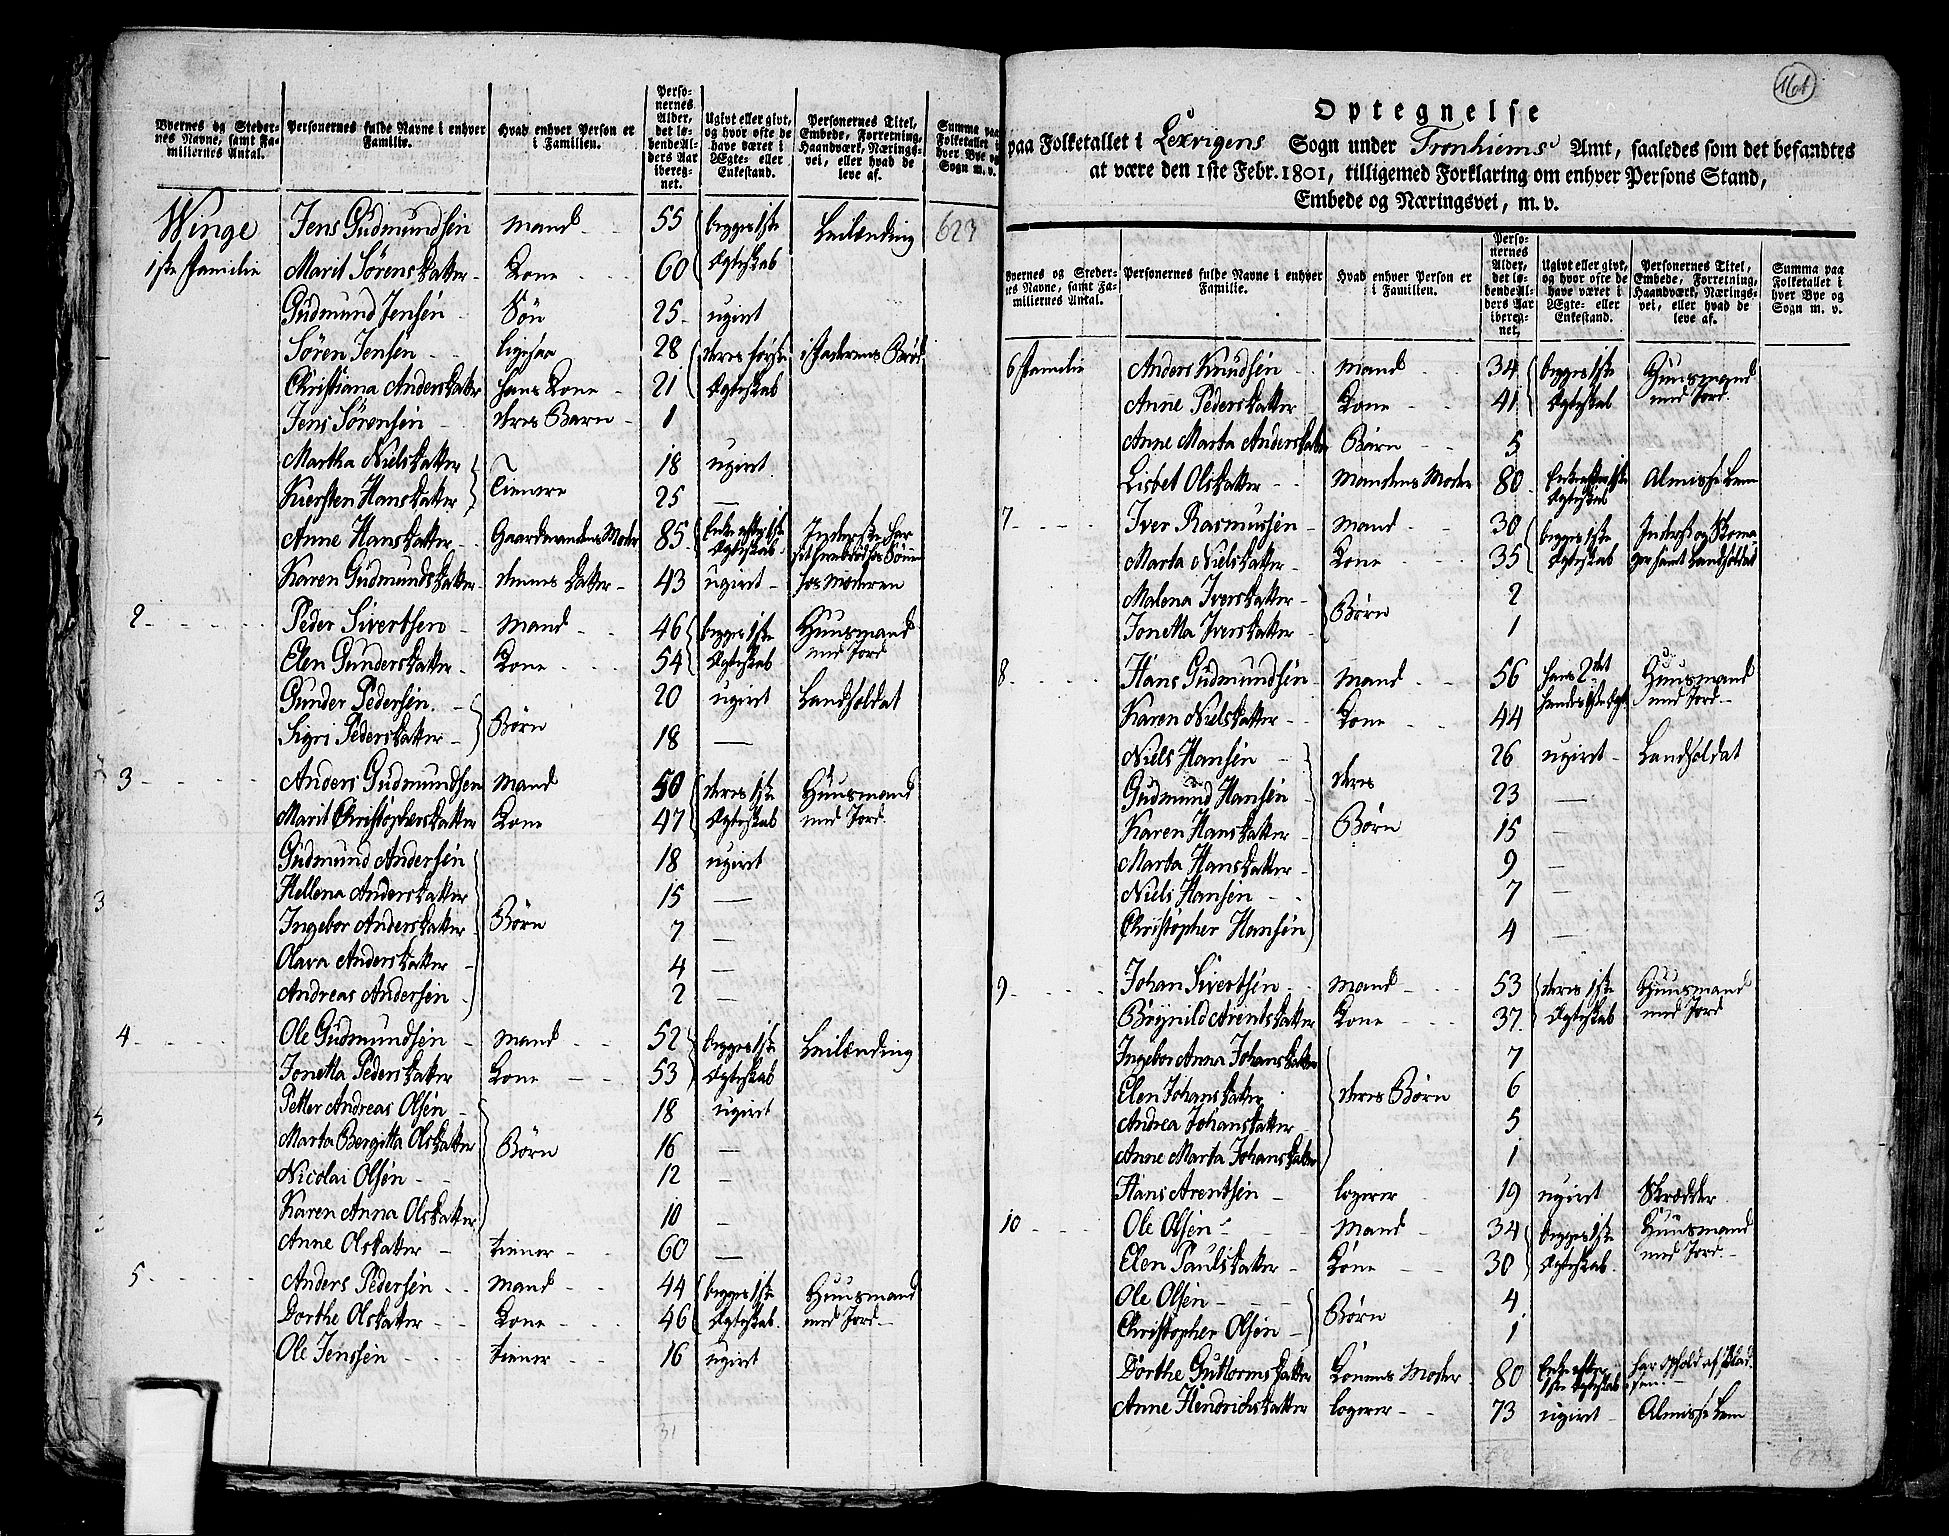 Byernes og Steder-
nes Navne, samt Fa-
miliernes Antal.
Personernes fulde Navne i enhver
Familie.
Hvad enhver Person er
i Familien.
Perso-
nernes
Alder,
det lø-
bende Al-
ders Aar
ibereg-
net.
Ugivt eller givt,
og hvor ofte de
have været i
Ægte- eller
Enkestand.
Personernes Titel,
Embede, Forretning,
Haandværk, Nærings-
vei, eller hvad de
leve af.
Summa paa
Folketallet i
hver Bye og
Sogn m. v.
Winge Jens Gudmundsen Mand 55 begges 1ste Leilænding 623
1ste Familie Marit Sørensdatter Kone 60 Ægteskab
Gudmund Jensen Søn 25 ugivt
Søren Jensen ligesaa 28 deres første i Faderens Brød
Christiana Andersdatter hans Kone 21 Ægteskab
Jens Sørensen deres Barn 1
Martha Nielsdatter 18 ugivt
Kiersten Hansdatter Tienere 25 —
Anne Hansdatter Gaardmandens Moder 85 Enke efter 1ste Ægteskab
Karen Gudmundsdatter dennes datter 43 ugivt hos Moderen
2 Peder Sivertsen Mand 46 begges 1ste Huusmand
Elen Gundersdatter Kone 54 Ægteskab med Jord
Gunder Pedersen 20 ugivt Landsoldat
Sigri Pedersdatter Børn 18 —
3 Anders Gudmundsen Mand 50 deres 1ste Huusmand
Marit Christophersdatter Kone 47 Ægteskab med Jord
Gudmund Andersen 18 ugivt
Hellena Andersdatter 15 —
Ingebor Andersdatter Børn 7 —
Olava Andersdatter 4 —
Andreas Andersen 2 —
4 Ole Gudmundsen Mand 52 begges 1ste Leilænding
Jonetta Pedersdatter Kone 53 Ægteskab
Petter Andreas Olsen 18 ugivt
Marta Bergitta Olsdatter Børn 16 —
Nicolai Olsen 12 —
Karen Anna Olsdatter 10 —
Anne Olsdatter tiener 60 —
5 Anders Pedersen Mand 44 begges 1ste Huusmand
Dorthe Olsdatter Kone 46 Ægteskab med Jord
Ole Jenssen tiener 16 ugivt
31
161
Optegnelse
paa Folketallet i Lexvigens Sogn under Tronhiems Amt, saaledes som det befandtes
at være den 1ste Febr. 1801, tilligemed Forklaring om enhver Persons Stand,
Embede og Næringsvei, m. v.
Byernes og Steder-
nes Navne, samt Fa-
miliernes Antal.
Personernes fulde Navne i enhver
Familie.
Hvad enhver Person er
i Familien.
Perso-
nernes
Alder,
det lø-
bende Al-
ders Aar
ibereg-
net.
Ugivt eller givt,
og hvor ofte de
have været i
Ægte- eller
Enkestand.
Personernes Titel,
Embede, Forretning,
Haandværk, Nærings-
vei, eller hvad de
leve af.
Summa paa
Folketallet i
hver Bye og
Sogn m. v.
6 Familie Anders Knudsen Mand 34 begges 1ste Huusmand
Anne Pedersdatter Kone 41 Ægteskab med Jord
Anne Marta Andersdatter Børn 5
Lisbet Olsdatter Mandens Moder 80 Enke efter 1ste Ægteskab Almisse Lem
7 Iver Rasmussen Mand 30 begges 1ste Inderst og Skoma-
Marta Nielsdatter Kone 35 Ægteskab ger samt Landsoldat
Malena Iversdatter 2
Jonetta Iversdatter Børn 1
8 Hans Gudmundsen Mand 56 hans 2det Huusmand
Karen Nielsdatter Kone 44 hendes 1ste Ægt. med Jord
Niels Hansen 26 ugivt Landsoldat
Gudmund Hansen deres 23 —
Karen Hansdatter Børn 15 —
Marta Hansdatter 9 —
Niels Hansen 7 —
Christopher Hansen 4 —
9 Johan Sivertsen Mand 53 deres 1ste Huusmand
Brynild Arentsdatter Kone 37 Ægteskab med Jord
Ingebor Anna Johansdatter 7
Elen Johansdatter deres Børn 6
Andrea Johansdatter 5
Anne Marta Johansdatter 1
Hans Arentsen logerer 19 ugivt Skrædder
10 Ole Olsen Mand 34 begges 1ste Huusmand
Elen Paulsdatter Kone 30 Ægteskab med Jord
Ole Olsen 4
Christopher Olsen Børn 1
Dorthe Guttormsdatter Konens Moder 80 Enke efter 1ste Ægteskab har ophold af Pladsen
Anne Hendrichsdatter logerer 73 ugivt Almisse Lem